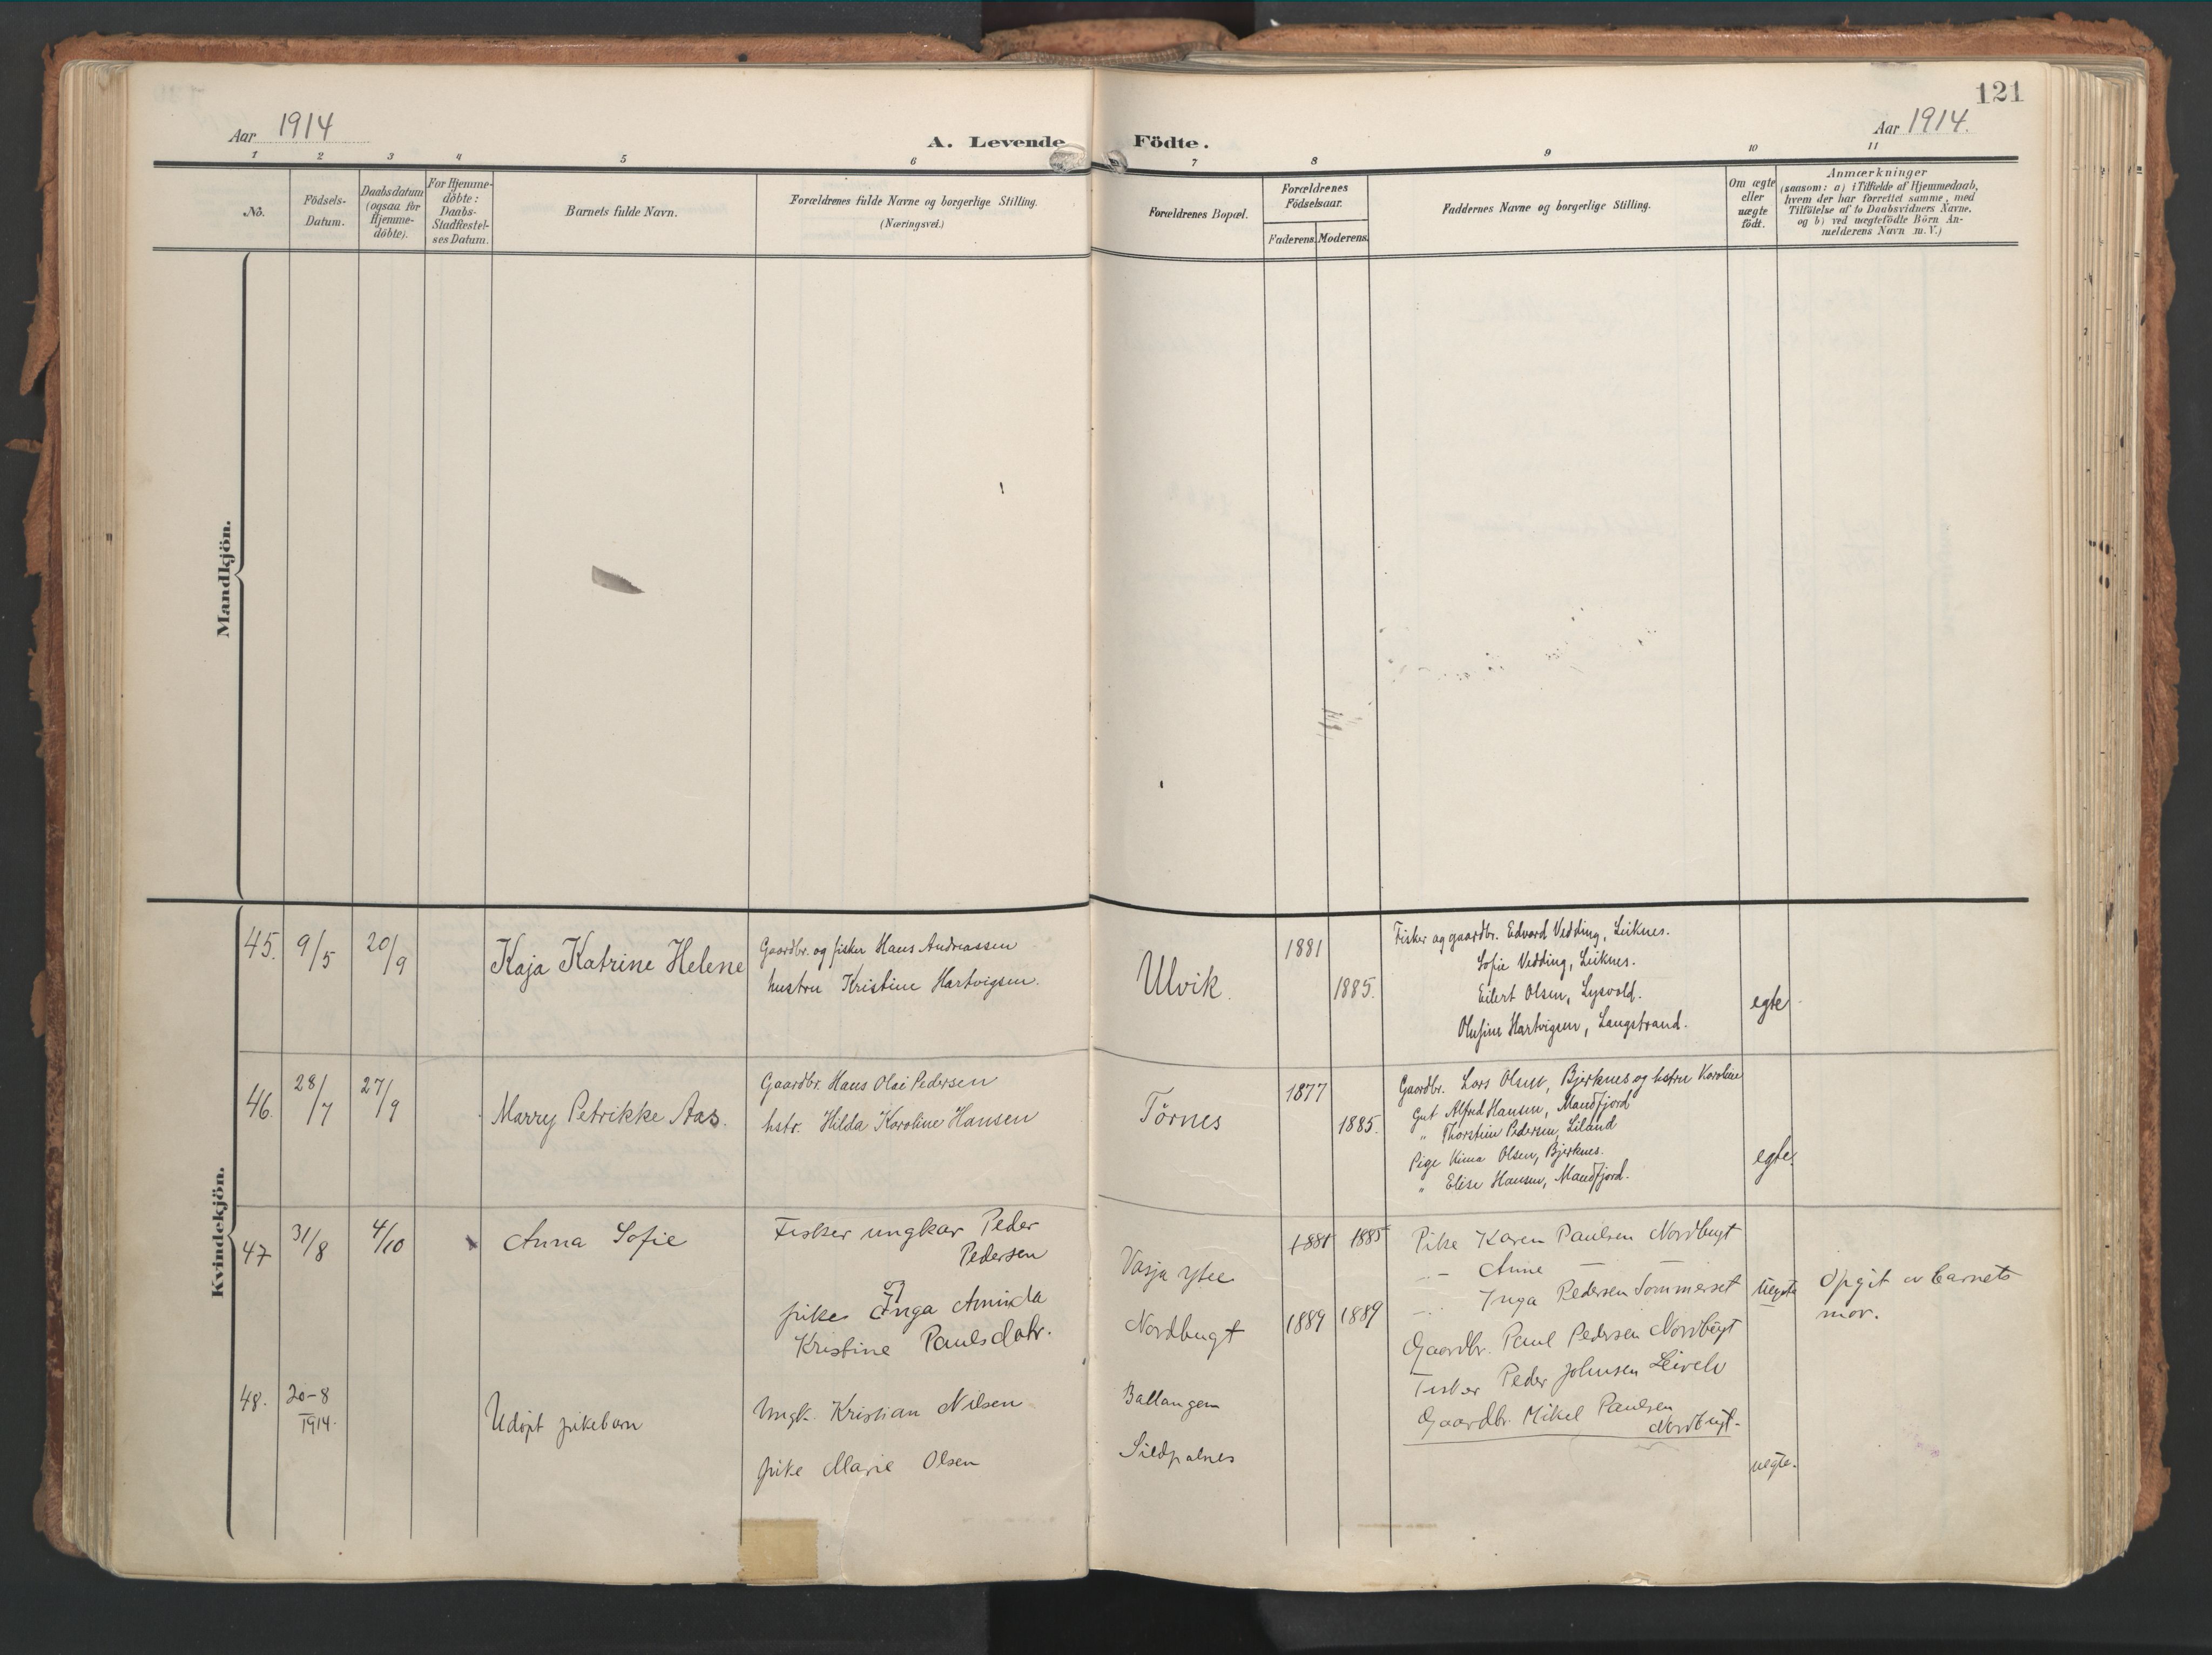 121
Aar 1914
A. Levende Födte.
Aar 1914.
1 2 3 4 5 6 7 8 9 10 11
No.
Födsels-
Datum.
Daabsdatum
(ogsaa for
Hjemme-
döbte).
For Hjemme-
döbte:
Daabs-
Stadfæstel-
ses Datum.
Barnets fulde Navn.
Forældrenes fulde Navne og borgerlige Stilling.
(Næringsvei.)
Forældrenes Bopæl.
Forældrenes
Födselsaar.
Faderens. Moderens.
Faddernes Navne og borgerlige Stilling.
Om ægte
eller
uægte
födt.
Anmærkninger
(saasom: a) i Tilfælde af Hjemmedaab,
hvem der har forrettet samme, med
Tilföielse af to Daabsvidners Navne,
og b) ved uægtefödte Börn An-
melderens Navn m. V.)
Mandkjön.
Kvindekjön.
45. 9/5 20/9
Kaja Katrine Helene
Gaardbr. og fisker Hans Andreassen
hustru Kristine Hartvigsen.
Ulvik.
1881
1885.
Fisker og gaardbr. Edvard Vedding, Leiknes.
Sofie Vedding, Leiknes.
Eilert Olsen, Lysvold.
Olufine Hartvigsen, Langstrand.
egte
46. 28/7 27/9
Marry Petrikke Aas.
Gaardbr. Hans Olai Pedersen
hstr. Hilda Karoline Hansen
Törnes
1877
1885.
Gaardbr. Lars Olsen, Bjerknes og hstru Karoline
Gut Alfred Hansen, Mandfjord
" Thorstein Pedersen, Liland
Pige Olsen, Bjerknes.
" Elise Hansen, Mandfjord.
egte.
47 31/8 4/10
Anna Sofie
Fisker ungkar Peder
Pedersen
og
pike Inga Aminda
Kristine Paulsdatr.
Vasja ytre
Nordbugt
1881 1885
1889 1889
Pike Karen Paulsen Nordbugt
-"- Anne —
-"- Inga Pedersen Sommerset
Gaardbr. Paul Pedersen Nordbugt
Fisker Peder Johnsen
Gaardbr. Mikel Paulsen
Nordbugt.
uegte
Opgit av barnets
mor.
48. 20-8
1914.
Udöpt pikebarn
Ungk. Kristian Nilsen
pike Marie Olsen
Ballangen
Sildpolnes
uegte.